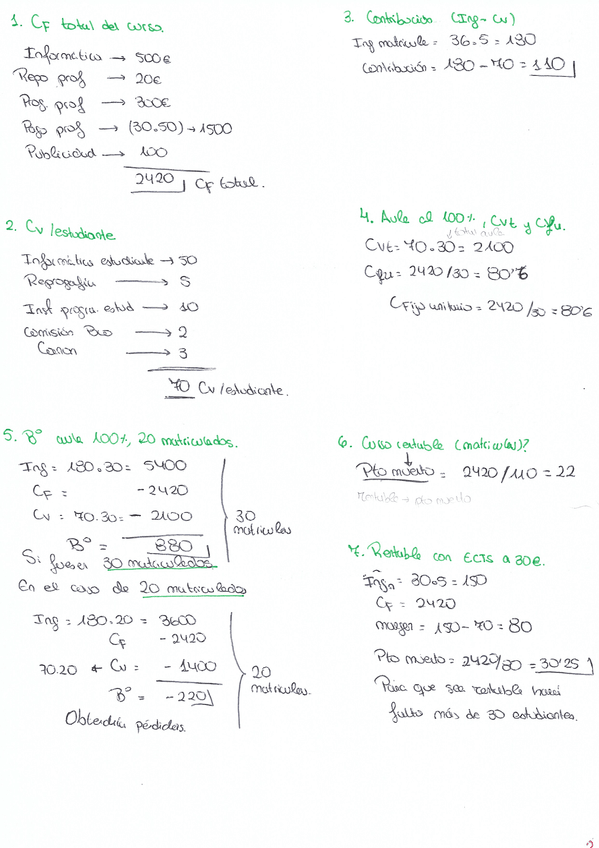 1. CF total del curso.
Informático → 500€
Repo prof → 20€
Prog. prof → 300€
Pago prof → (30.50) → 1500
Publicidad → 100
2420 CF total.
2. Cv /estudiante
Informático estudiante → 50
Reprografía → 5
Inst progra. estud → 10
Comisión Bco → 2
Canon → 3
70 Cv /estudiante.
3. Contribución (Ing - Cv)
Ing matrícula = 36.5 = 180
Contribución = 180 - 70 = 110
4. Aula al 100%, CVt y Cfu.
CVt = 70.30 = 2100
Cfu = 2420/30 = 80'6
CFijo unitario = 2420/30 = 80'6
5. Bº aula 100%, 20 matriculados.
Ing = 180.30 = 5400
CF = -2420
CV = 70.30 = - 2100
Bº = 880
30 matriculas
Si fuesen 30 matriculados
En el caso de 20 matriculados
Ing = 180.20 = 3600
CF - 2420
70.20 ← Cv = - 1400
Bº = - 220
20 matriculas.
Obtendría pérdidas.
6. Curso rentable (matriculas)?
Pto muerto = 2420/110 = 22
rentable → pto muerto
7. Rentable con ECTS a 30€.
Ing = 30.5 = 150
CF = 2420
margen = 150 - 70 = 80
Pto muerto = 2420/80 = 30'25
Para que sea rentable hará
falta más de 30 estudiantes.